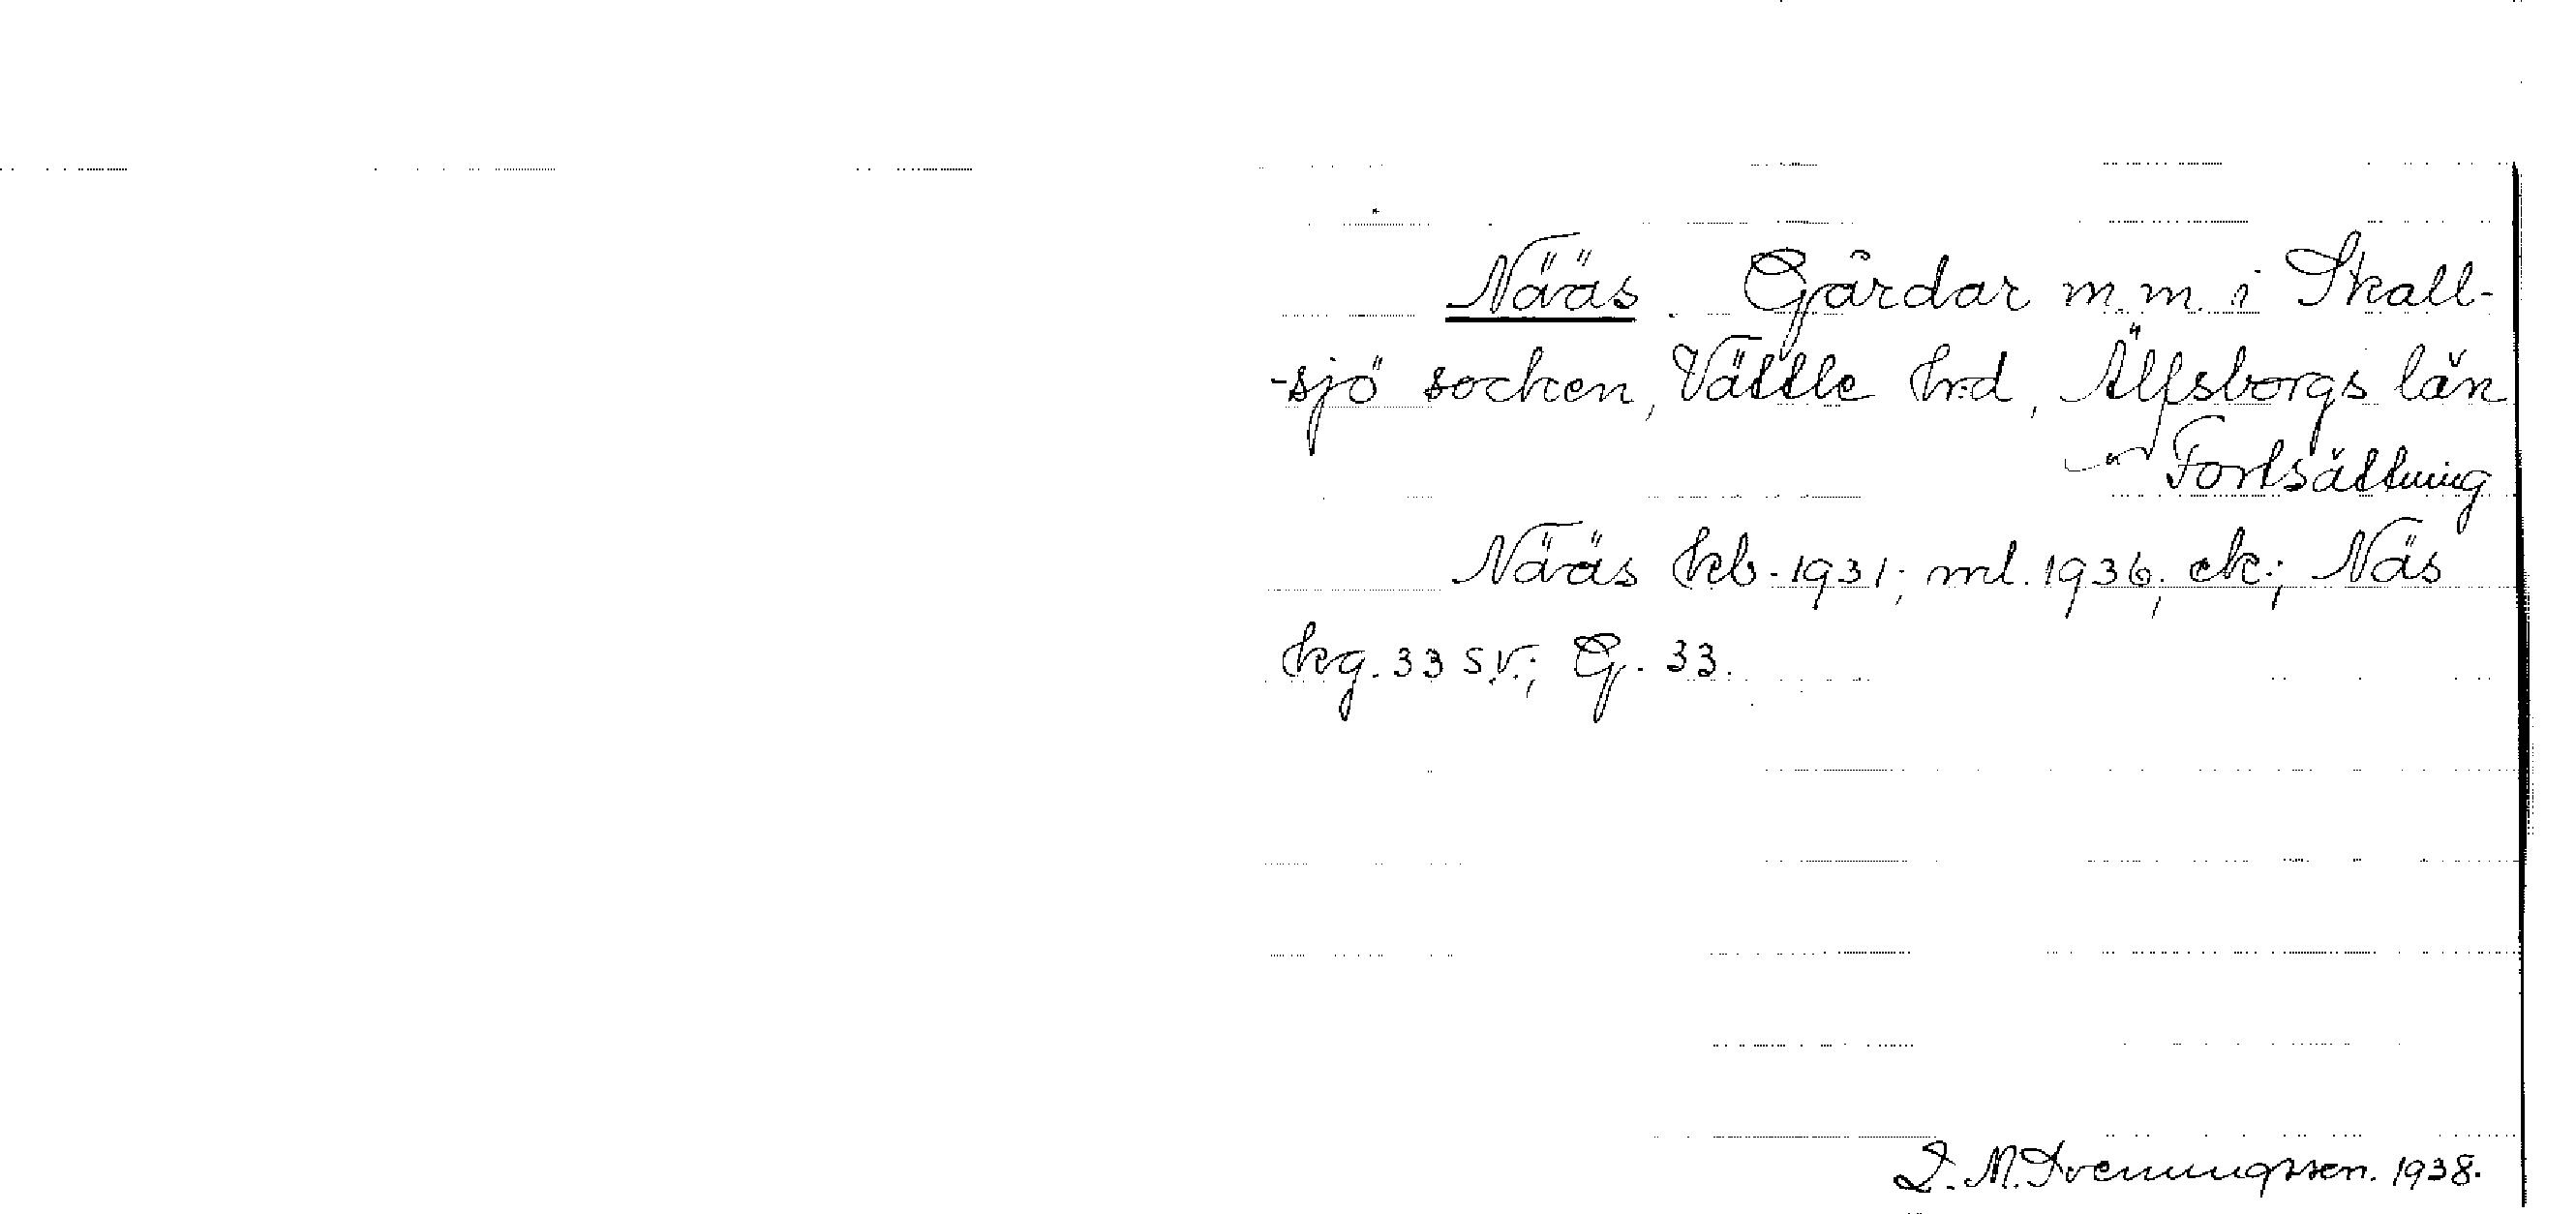 Nääs. Gårdar m.m. i Skall-
-sjö socken, Vättle hrd, Älfsborgs län
Fortsättning
Nääs kb. 1931; ml. 1936; ek.; Näs
kg. 33 s.v.; G. 33.
M. Svenungsson. 1938.